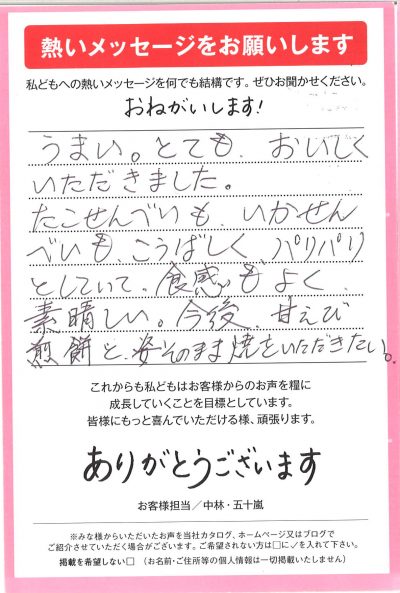 熱いメッセージをお願いします
私どもへの熱いメッセージを何でも結構です。ぜひお聞かせください。
おねがいします!
うまい。とても、おいしく
いただきました。
たこせんべいも、いかせん
べいも、こうばしく、パリパリ
としていて、食感もよく、
素晴しい。今後、甘えび
煎餅と、姿そのまま焼をいただきたい。
これからも私どもはお客様からのお声を糧に
成長していくことを目標としています。
皆様にもっと喜んでいただける様、頑張ります。
ありがとうございます
お客様担当／中林・五十嵐
※みな様からいただいたお声を当社カタログ、ホームページ又はブログで
ご紹介させていただく場合がございます。ご希望されない方は□に✓を入れて下さい。
掲載を希望しない□ （お名前・ご住所等の個人情報は一切掲載いたしません）